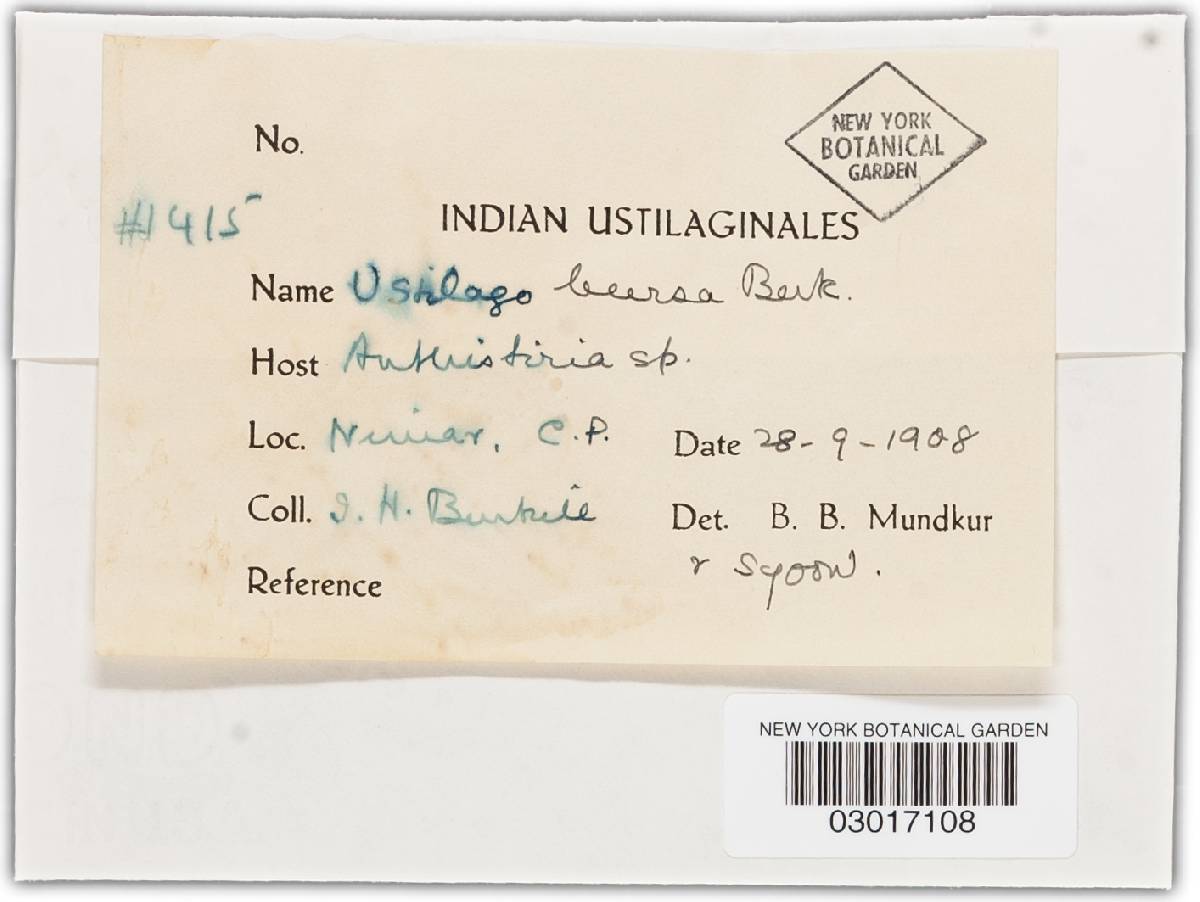 No.
NEW YORK
BOTANICAL
GARDEN
#1415
INDIAN USTILAGINALES
Name Ustilago bursa Berk.
Host Anthistiria sp.
Loc. Nimar, C.P. Date 28-9-1908
Coll. I. H. Burkill Det. B. B. Mundkur
Reference
NEW YORK BOTANICAL GARDEN
03017108